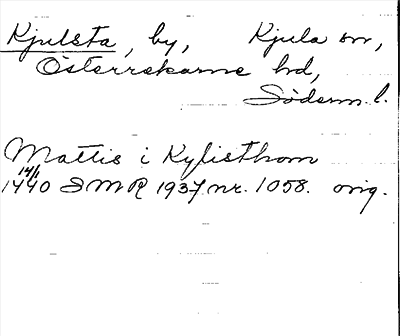 Kjulsta, by, Kjula sn,
Österrekarne hd,
Söderm. l.
Mattis i Kylisthom
14/1
1440 SMR 1937 nr. 1058. orig.